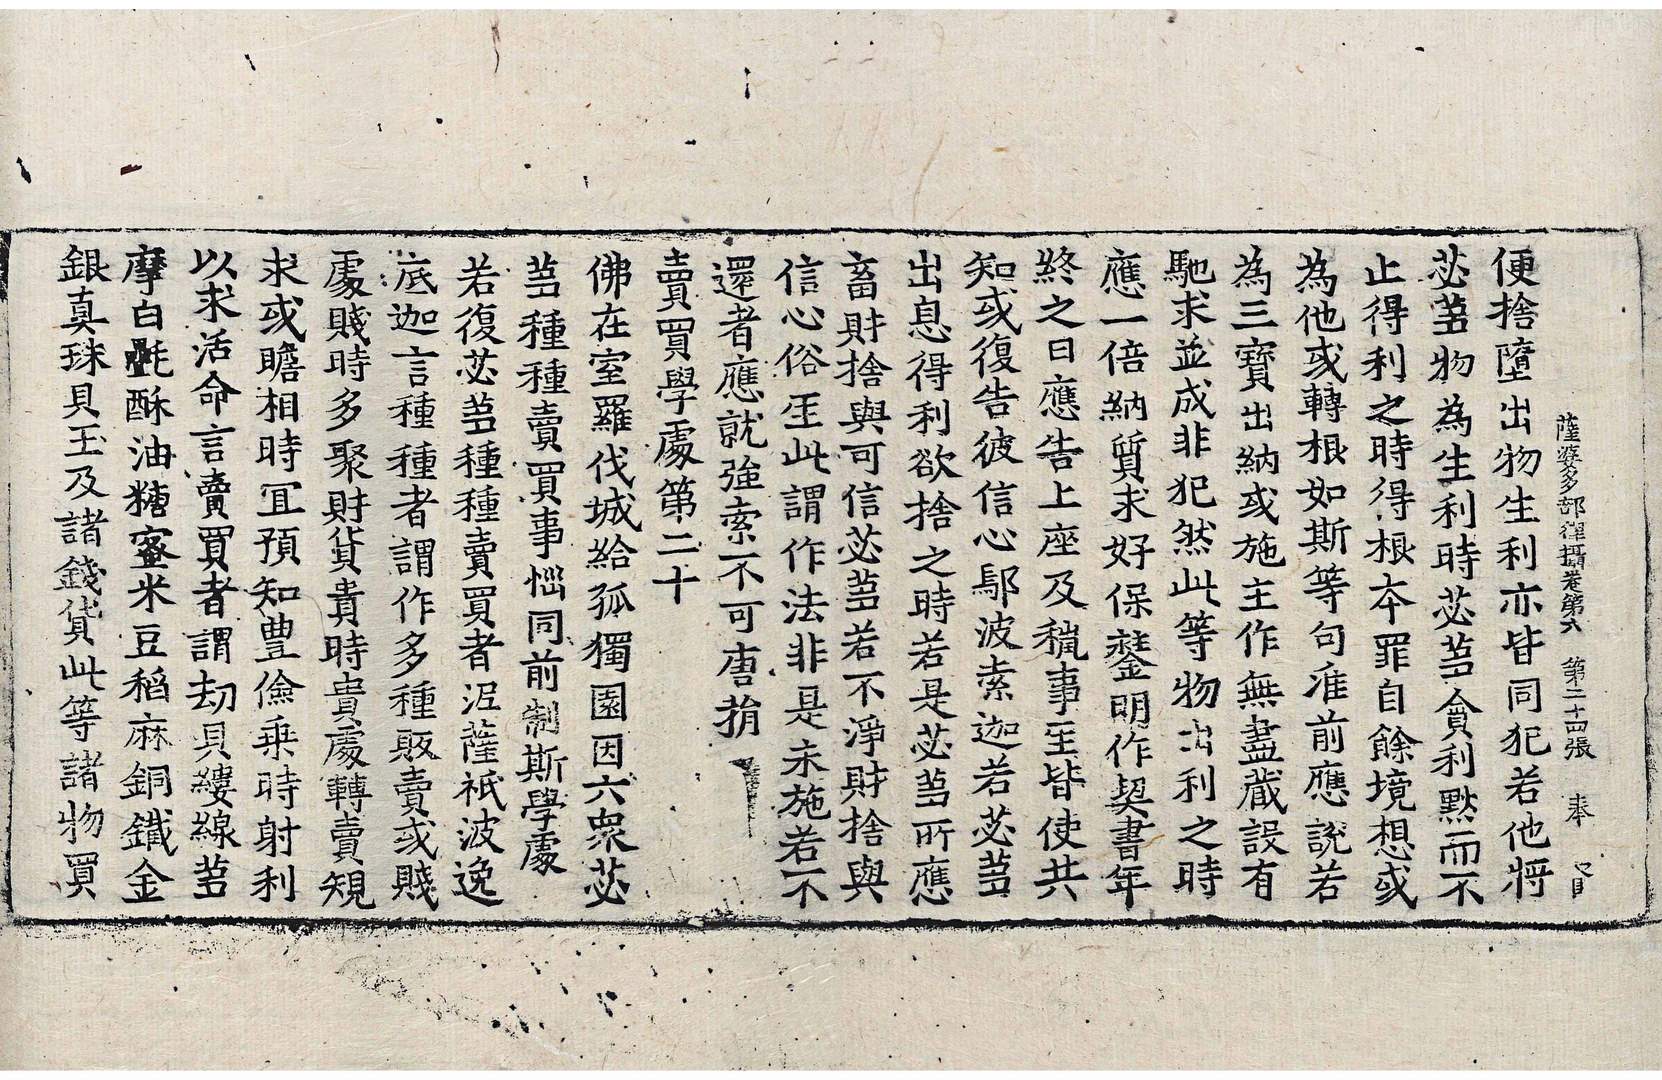 薩婆多部律攝卷第六　第二十四張　奉
便捨墮出物生利亦皆同犯若他將
苾蒭物為生利時苾蒭貪利默而不
止得利之時得根本罪自餘境想或
為他或轉根如斯等句准前應說若
為三寶出納或施主作無盡藏設有
馳求並成非犯然此等物出利之時
應一倍納質求好保鍳明作契書年
終之日應告上座及稵事𦤶皆使共
知或復告彼信心鄔波索迦若苾蒭
出息得利欲捨之時若是苾蒭所應
畜財捨與可信苾蒭若不淨財捨與
信心俗𦤶此謂作法非是未施若不
還者應就強索不可唐捐
賣買學處第二十
佛在室羅伐城給孤獨園因六眾苾
蒭種種賣買事惱同前制斯學處
若復苾蒭種種賣買者泥薩祇波逸
底迦言種種者謂作多種販賣或賤
處賤時多聚財貨貴時貴處轉賣規
求或瞻相時冝預知豐儉乗時射利
以求活命言賣買者謂劫貝縷線蒭
摩白㲲酥油糖蜜米豆稻麻銅鐵金
銀真珠貝玉及諸錢貨此等諸物買